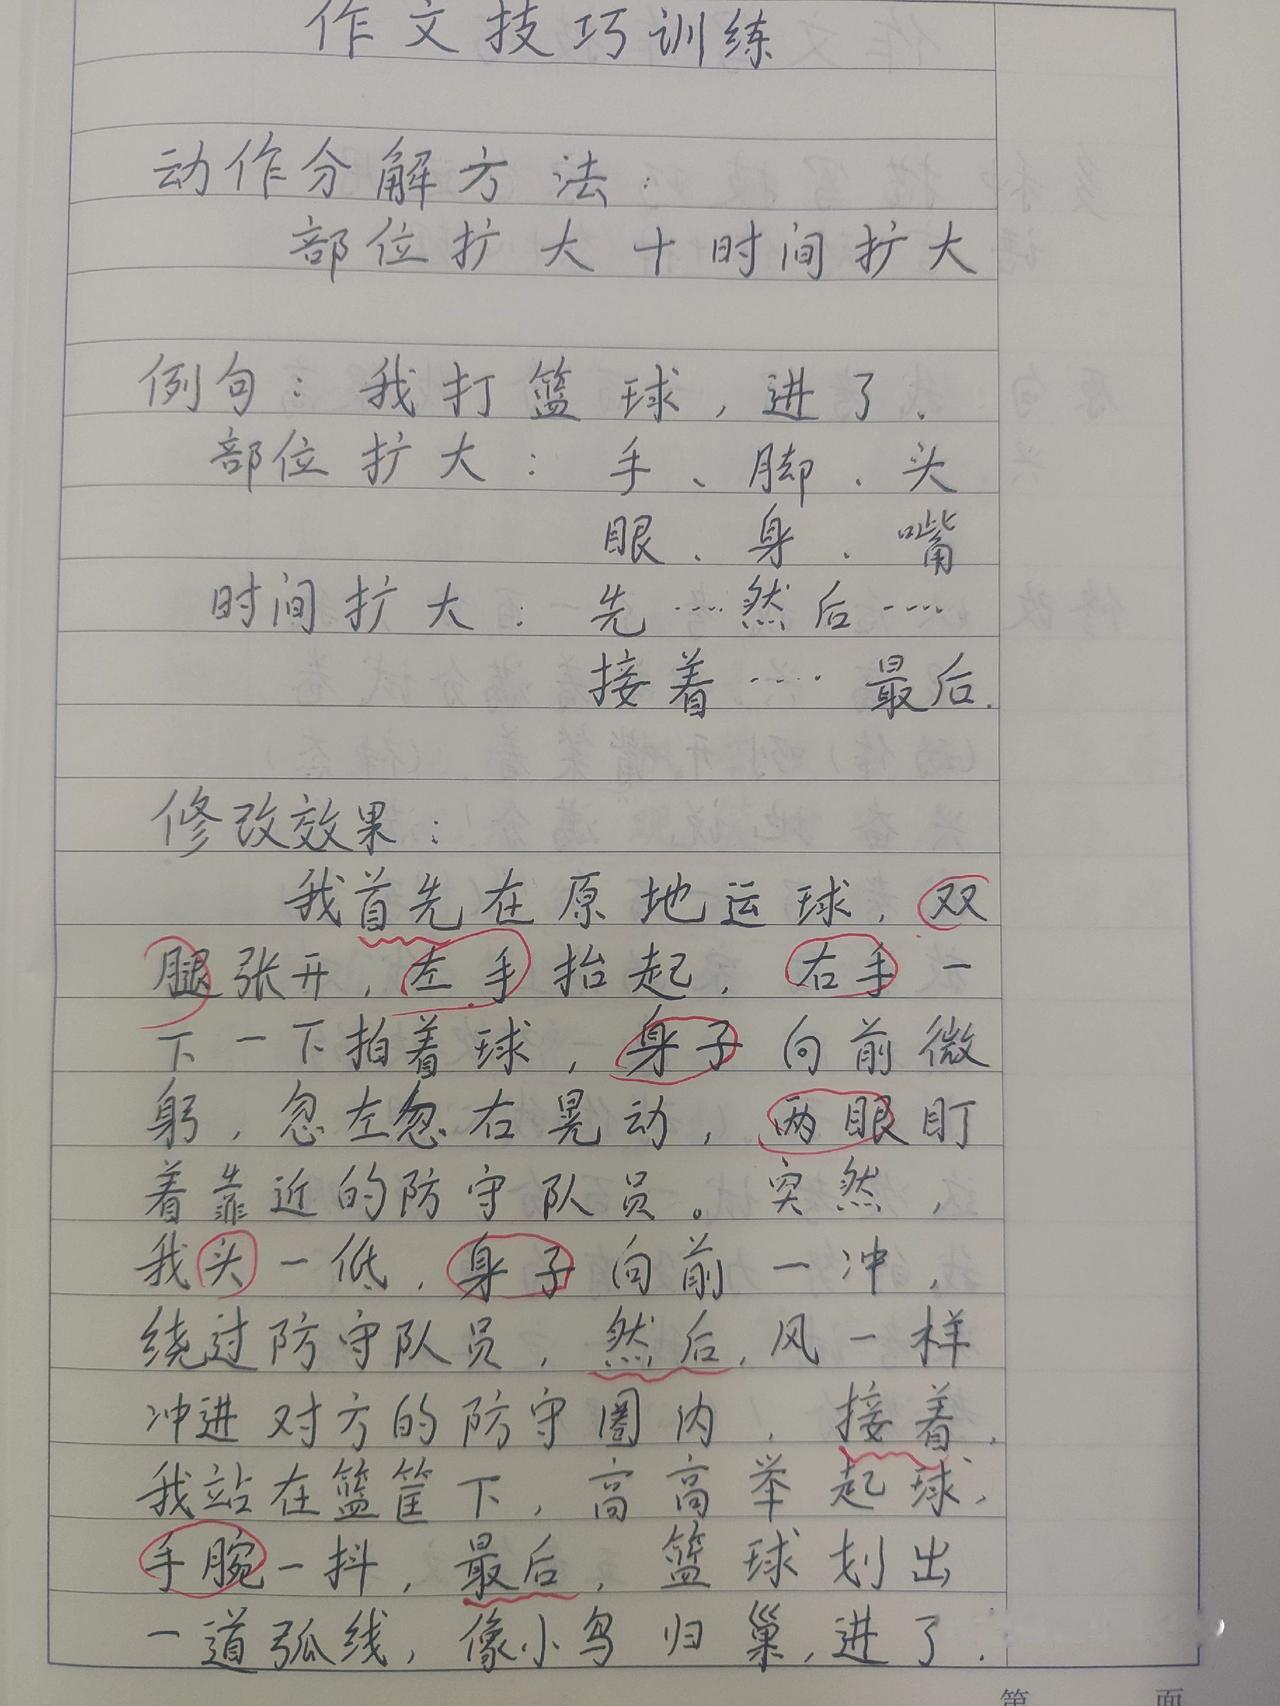 作文技巧训练
动作分解方法：
部位扩大＋时间扩大
例句：我打篮球，进了.
部位扩大：手、脚、头
眼、身、嘴
时间扩大：先……然后……
接着……最后.
修改效果：
我首先在原地运球，双
腿张开，左手抬起，右手一
下一下拍着球，身子向前微
躬，忽左忽右晃动，两眼盯
着靠近的防守队员。突然，
我头一低，身子向前一冲，
绕过防守队员，然后，风一样
冲进对方的防守圈内，接着，
我站在篮筐下，高高举起球，
手腕一抖，最后，篮球划出
一道弧线，像小鸟归巢，进了.
第 面